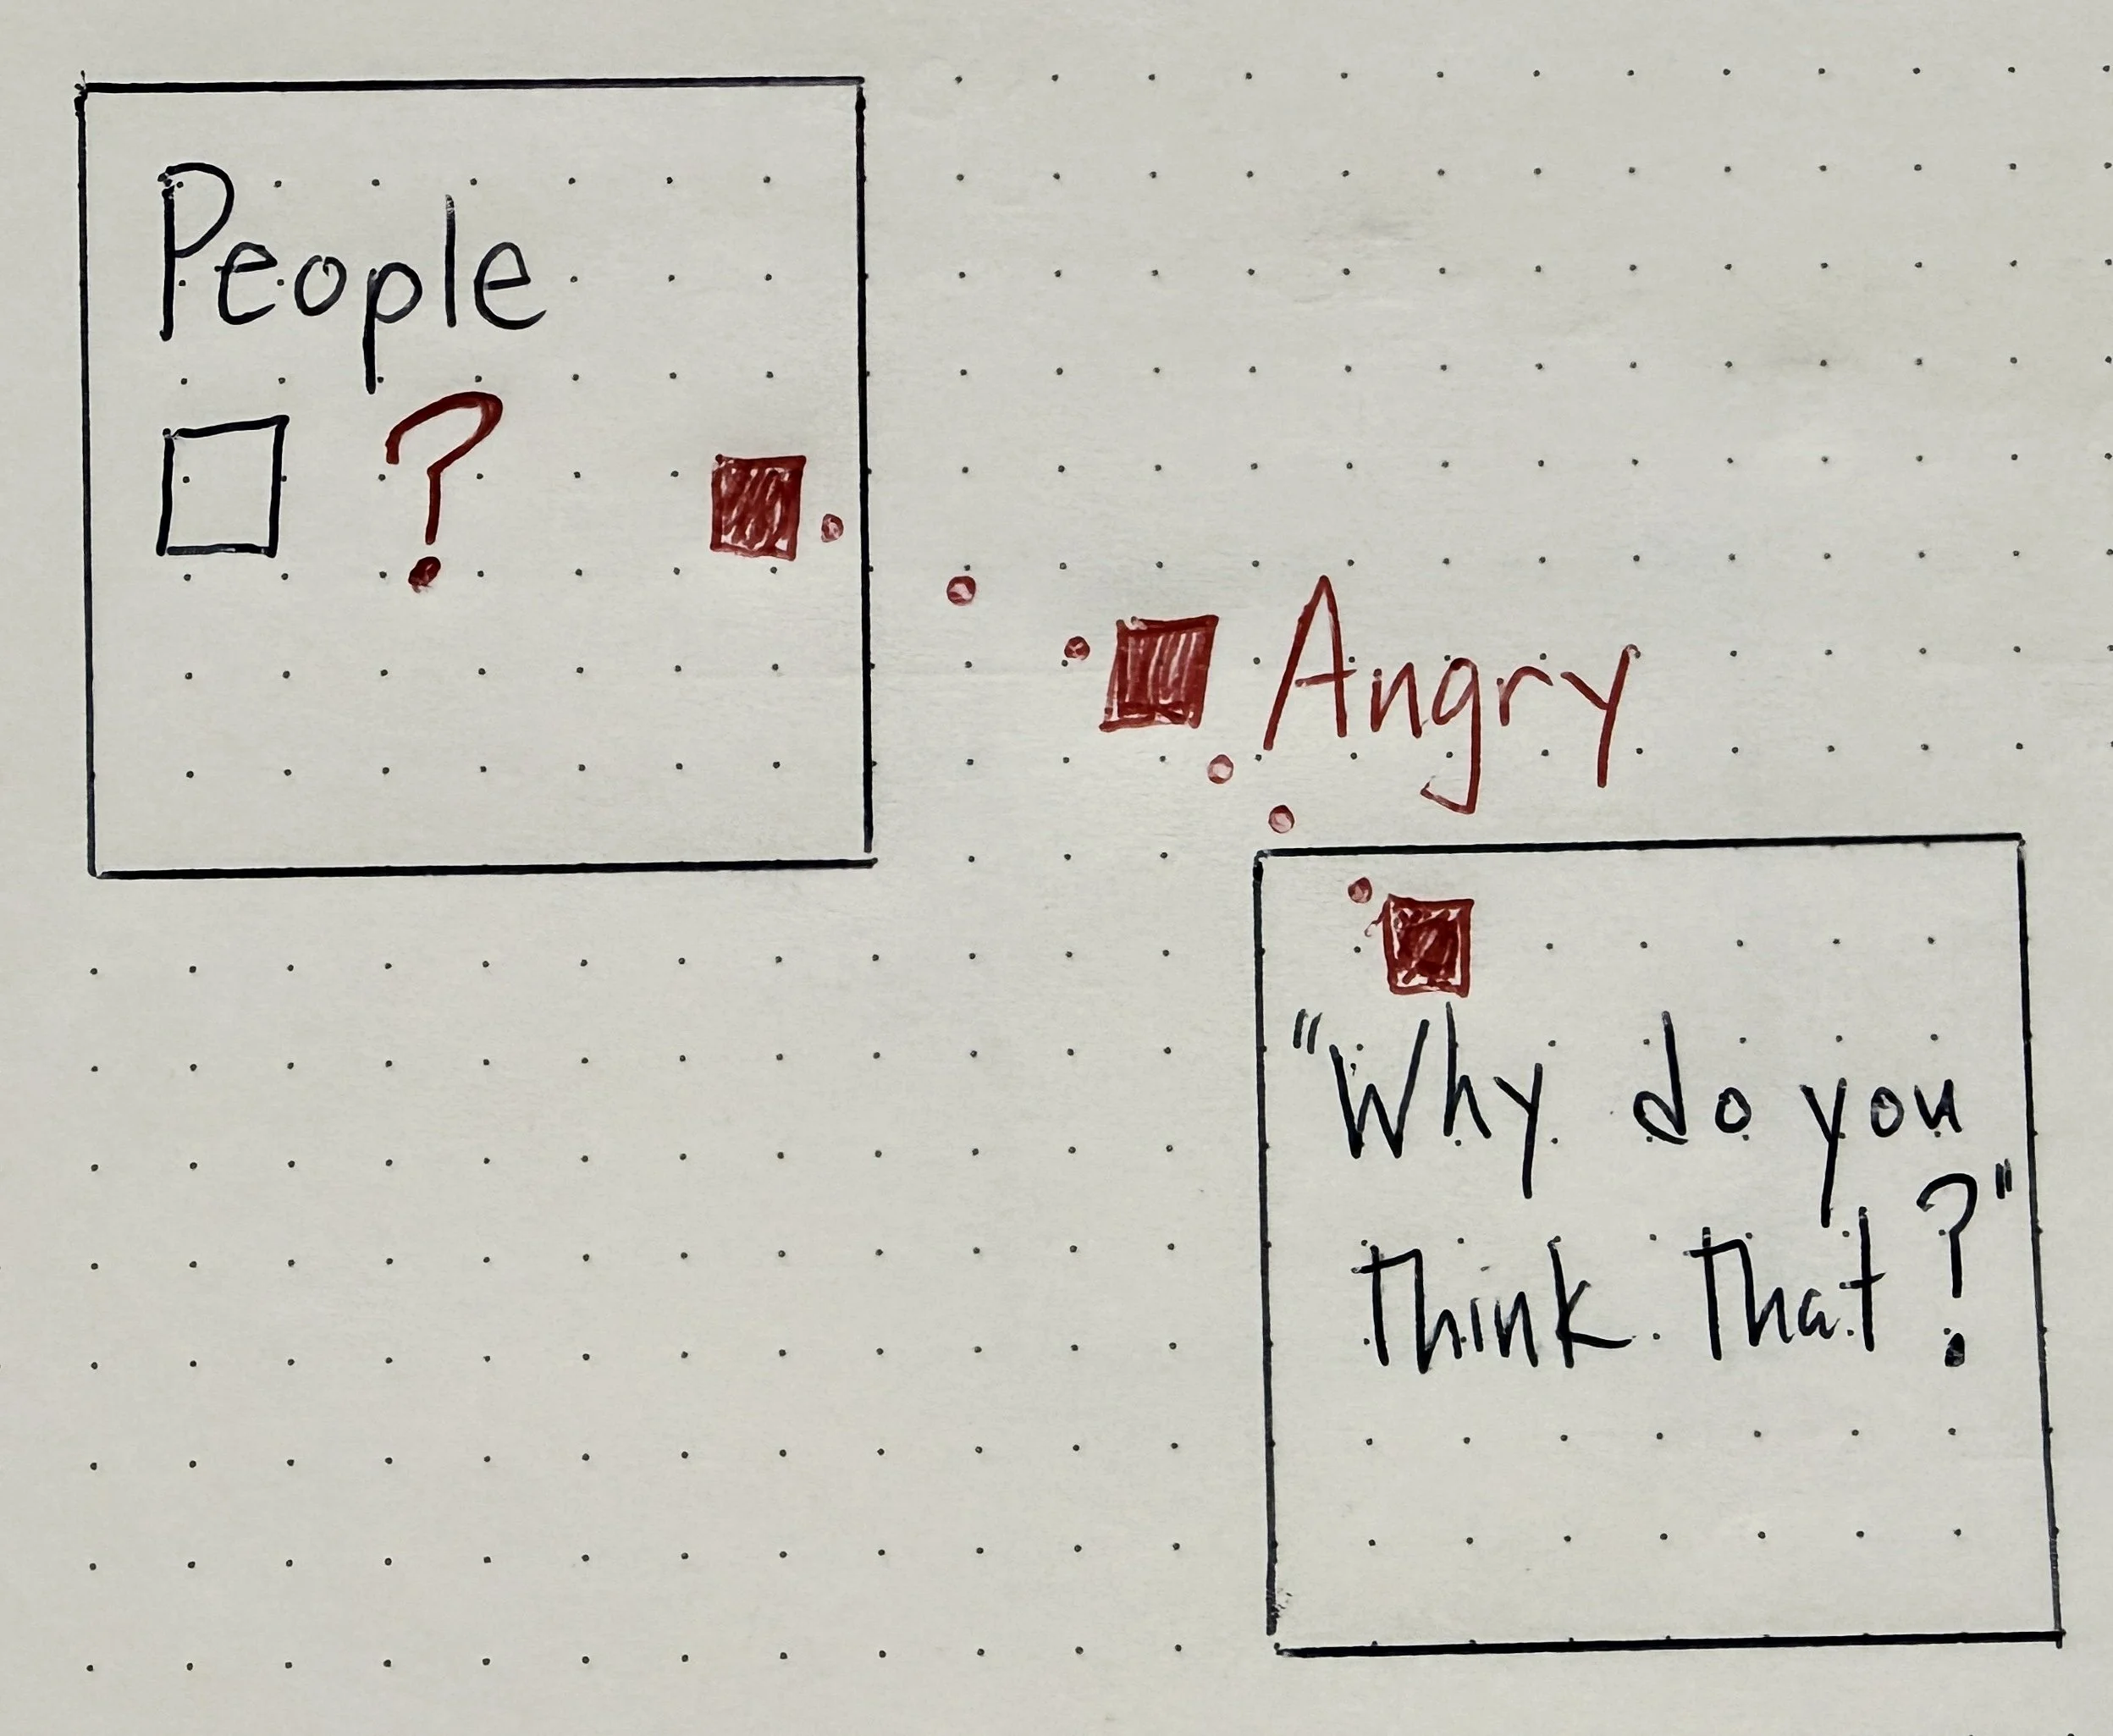 People
?
Angry
"Why do you
think that?"